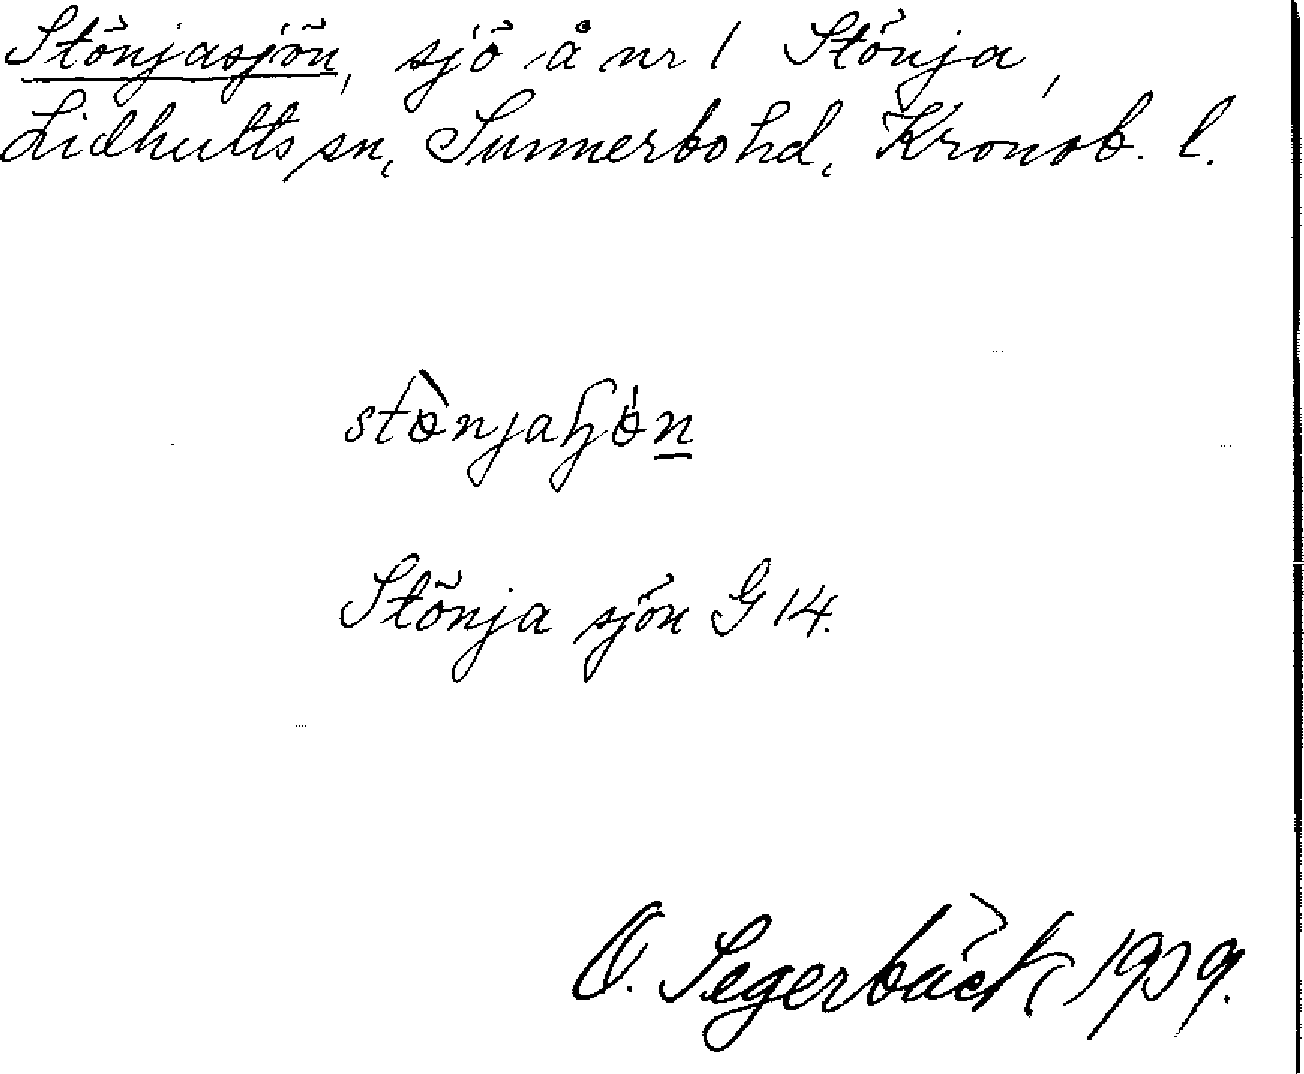 Stönjasjön, sjö å nr 1 Stönja,
Lidhults sn, Sunnerbo hd, Kronob. l.
stɵ̀njaɧɵ́n
Stönja sjön G 14.
O. Segerbäck 1939.